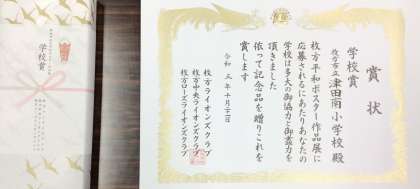 学校賞
賞状
学校賞
枚方市立津田南小学校 殿
枚方平和ポスター作品展に
応募されるにあたりあなたの
学校は多大の御協力と御盡力を
頂きました
依って記念品を贈りこれを
賞します
令和 三年十月二十三日
枚方ライオンズクラブ
枚方中央ライオンズクラブ
枚方ローズライオンズクラブ